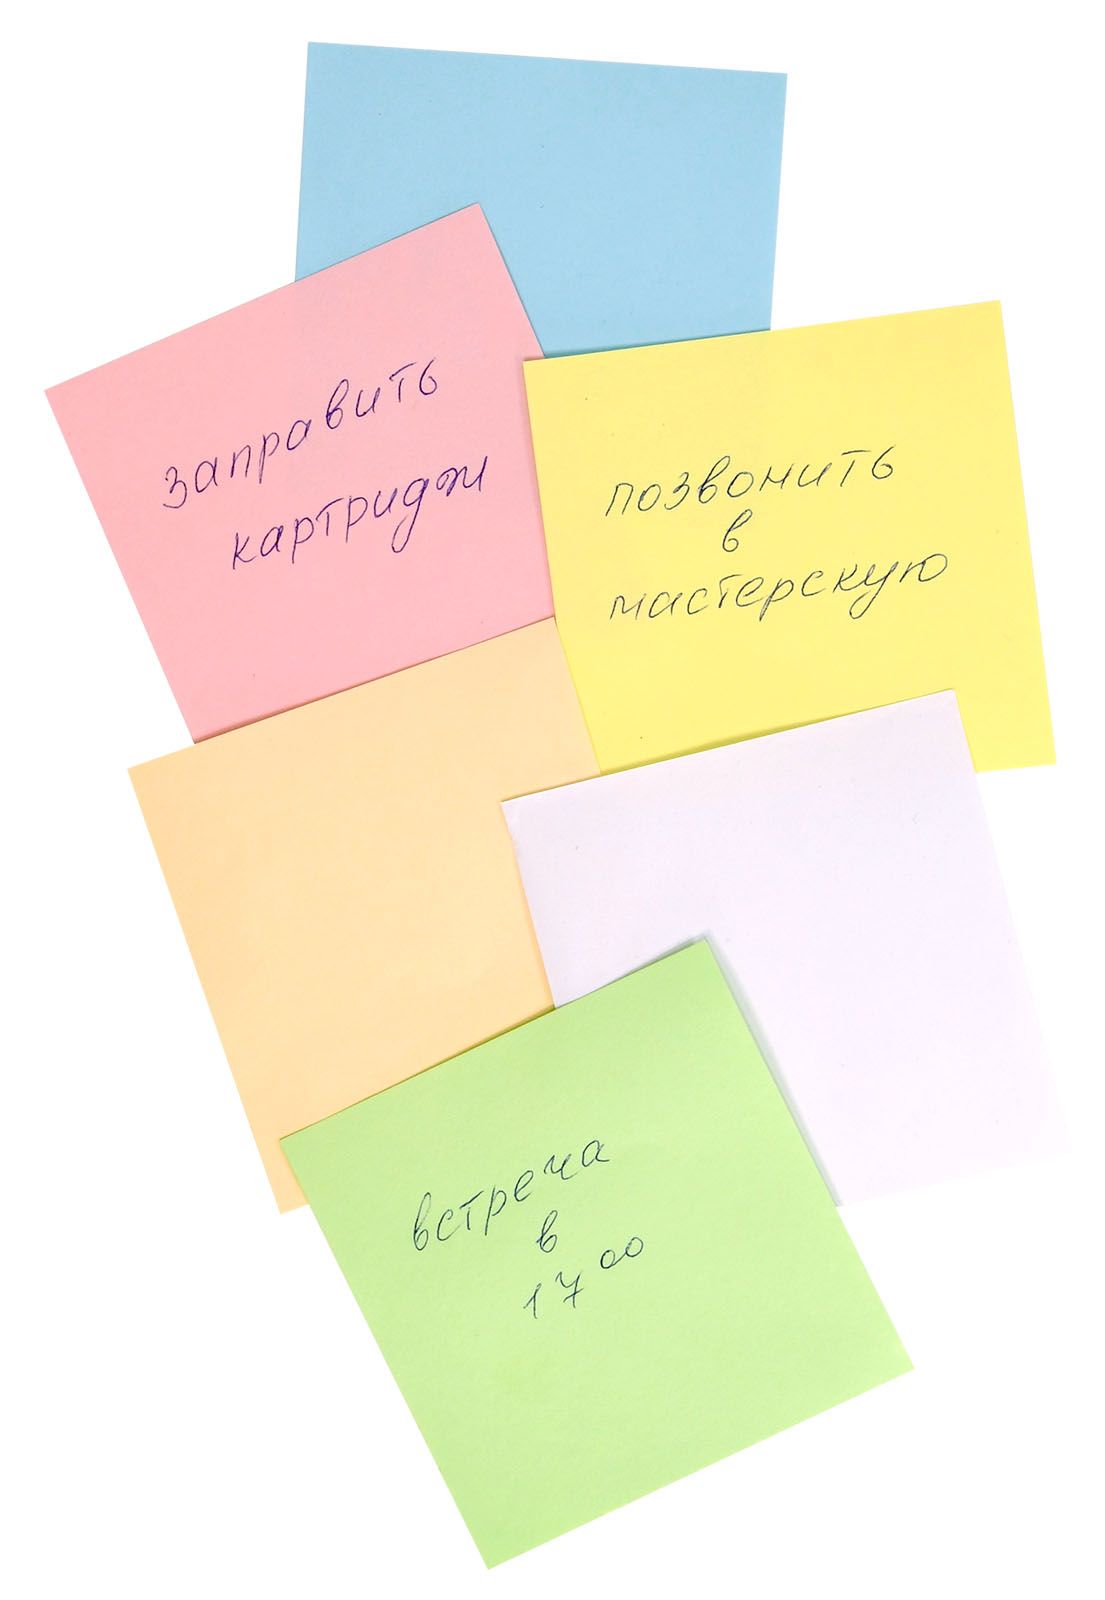 заправить
картридж
позвонить
в
мастерскую
встреча
в
17 00